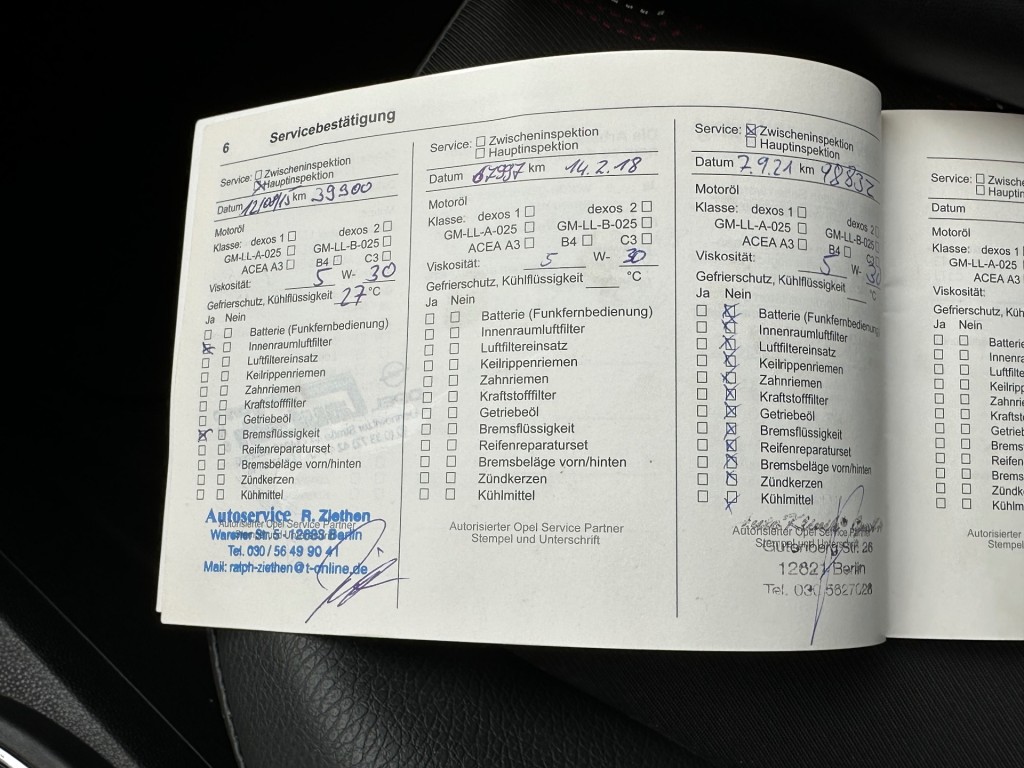 6 Servicebestätigung
Service: Zwischeninspektion
Hauptinspektion
Datum 12/09/15 km 39900
Motoröl
Klasse: dexos 1 dexos 2
GM-LL-A-025 GM-LL-B-025
ACEA A3 B4 C3
Viskosität: 5 W- 30
Gefrierschutz, Kühlflüssigkeit 27 °C
Ja Nein
Batterie (Funkfernbedienung)
Innenraumluftfilter
Luftfiltereinsatz
Keilrippenriemen
Zahnriemen
Kraftstofffilter
Getriebeöl
Bremsflüssigkeit
Reifenreparaturset
Bremsbeläge vorn/hinten
Zündkerzen
Kühlmittel
Autoservice R. Ziethen
Autorisierter Opel Service Partner
Warener Str. 5 - 12683 Berlin
Tel. 030 / 56 49 90 41
Mail: ralph-ziethen@t-online.de
Service: Zwischeninspektion
Hauptinspektion
Datum 67997 km 14.2.18
Motoröl
Klasse: dexos 1 dexos 2
GM-LL-A-025 GM-LL-B-025
ACEA A3 B4 C3
Viskosität: 5 W- 30
Gefrierschutz, Kühlflüssigkeit °C
Ja Nein
Batterie (Funkfernbedienung)
Innenraumluftfilter
Luftfiltereinsatz
Keilrippenriemen
Zahnriemen
Kraftstofffilter
Getriebeöl
Bremsflüssigkeit
Reifenreparaturset
Bremsbeläge vorn/hinten
Zündkerzen
Kühlmittel
Autorisierter Opel Service Partner
Stempel und Unterschrift
Service: Zwischeninspektion
Hauptinspektion
Datum 7.9.21 km 98832
Motoröl
Klasse: dexos 1 dexos 2
GM-LL-A-025 GM-LL-B-025
ACEA A3 B4 C3
Viskosität: 5 W- 30
Gefrierschutz, Kühlflüssigkeit °C
Ja Nein
Batterie (Funkfernbedienung)
Innenraumluftfilter
Luftfiltereinsatz
Keilrippenriemen
Zahnriemen
Kraftstofffilter
Getriebeöl
Bremsflüssigkeit
Reifenreparaturset
Bremsbeläge vorn/hinten
Zündkerzen
Kühlmittel
Autorisierter Opel Service Partner
Stempel und Unterschrift
Gutenberg Str. 26
12621 Berlin
Tel. 030 5627028
Service: Zwische
Hauptins
Datum
Motoröl
Klasse: dexos 1
GM-LL-A-025
ACEA A3
Viskosität:
Gefrierschutz, Küh
Ja Nein
Batterie
Innenra
Luftfilte
Keilripp
Zahnrie
Kraftst
Getrieb
Brems
Reifen
Brems
Zündk
Kühlm
Autorisier
Stempel